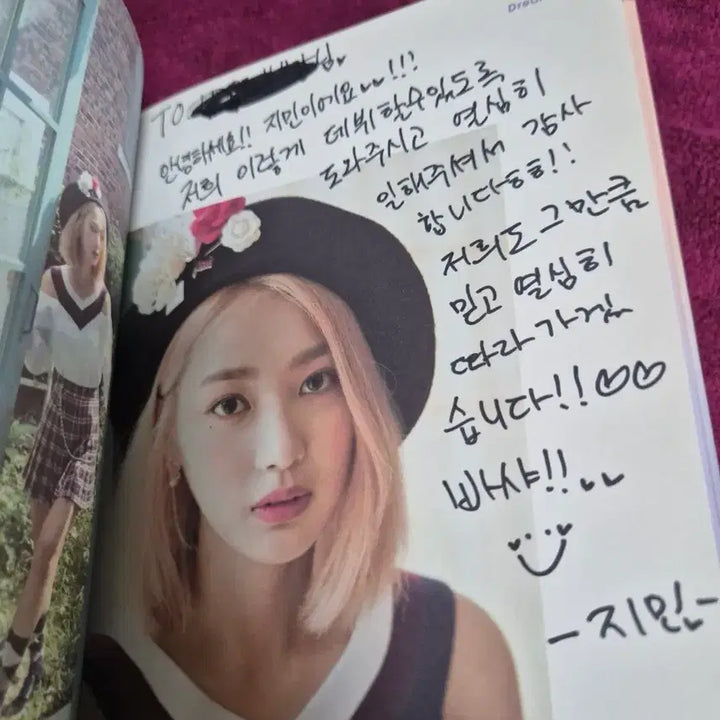 TO 님
안녕하세요!! 지민이에요 !!!
저희 이렇게 데뷔할수있도록
도와주시고 열심히
일해주셔서 감사
합니다ㅎㅎ!!
저희도 그만큼
믿고 열심히
따라가겠
습니다!!♡♡
빠샤!!
-지민-